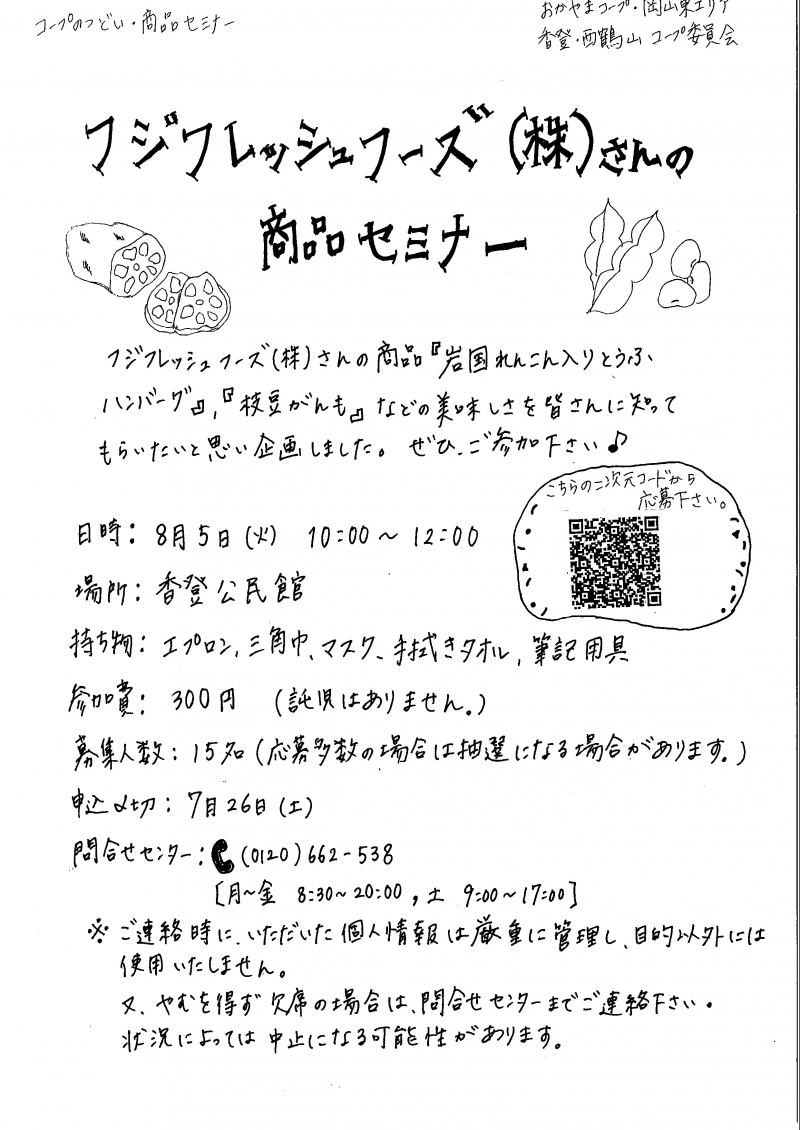 コープのつどい・商品セミナー
おかやまコープ・岡山東エリア
香登・西鶴山 コープ委員会
フジフレッシュフーズ(株)さんの
商品セミナー
フジフレッシュフーズ(株)さんの商品『岩国れんこん入りとうふ
ハンバーグ』,『枝豆がんも』などの美味しさを皆さんに知って
もらいたいと思い企画しました。ぜひ、ご参加下さい♪
こちらの二次元コードから
応募下さい。
日時：8月5日(火) 10:00～12:00
場所：香登公民館
持ち物：エプロン,三角巾、マスク、手拭きタオル,筆記用具
参加費：300円 (託児はありません。)
募集人数：15名(応募多数の場合は抽選になる場合があります。)
申込〆切：7月26日(土)
問合せセンター：(0120)662-538
[月～金 8:30～20:00,土 9:00～17:00]
※ご連絡時に、いただいた個人情報は厳重に管理し、目的以外には
使用いたしません。
又、やむを得ず欠席の場合は、問合せセンターまでご連絡下さい。
状況によっては中止になる可能性があります。